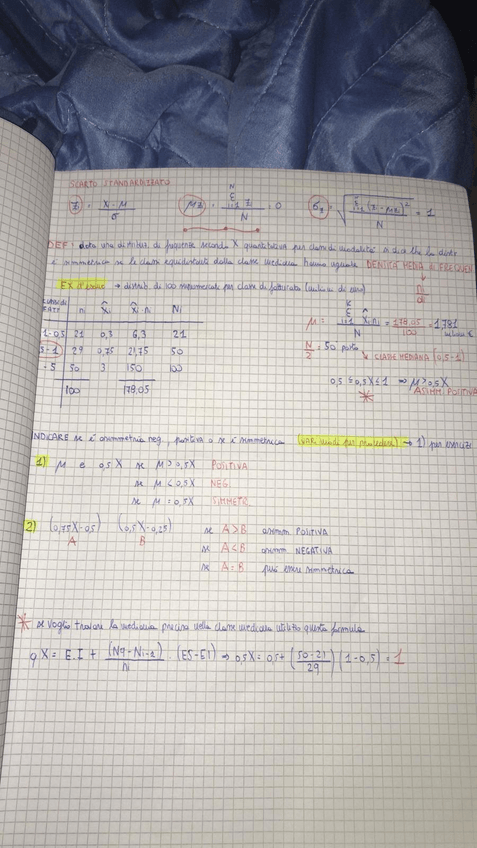 SCARTO STANDARDIZZATO
Zi = Xi - M / σ
MZ = N Σ i=1 Zi / N = 0
σZ = √ Σ i=1 (Zi - MZ)² / N = 1
DEF: data una distribuz. di frequenze secondo X quantitativa per classi di modalità si dice che la distr
è simmetrica se le classi equidistanti dalla classe mediana hanno uguale DENSITÀ MEDIA DI FREQUEN
ni
di
EX → distrib. di 100 supermercati per classe di fatturato (milioni di euro)
ni X̂i X̂i·ni Ni
1-0,5 21 0,3 6,3 21
5-1 29 0,75 21,75 50
-5 50 3 150 100
100 178,05
M = K Σ i=1 X̂i ni / N = 178,05 / 100 = 1,781
N/2 = 50 posto
CLASSE MEDIANA (0,5-1)
0,5 ≤ 0,5X ≤ 1 ⇒ M > 0,5X
ASIMM. POSITIVA
*
INDICARE se è asimmetria neg, positiva o se è simmetrica (VARI modi per procedere) → 1) per esercizi
1) M e 0,5X se M > 0,5X POSITIVA
se M < 0,5X NEG
se M = 0,5X SIMMETR.
2) (0,75X - 0,5) (0,5X - 0,25) se A>B asimm POSITIVA
A B se A<B asimm NEGATIVA
se A=B può essere simmetrica
* se voglio trovare la mediana precisa nella classe mediana utilizzo questa formula
qX = E.I + (Nq - Ni-1) / ni · (ES-EI) ⇒ 0,5X = 0,5 + (50-21 / 29) (1-0,5) = 1